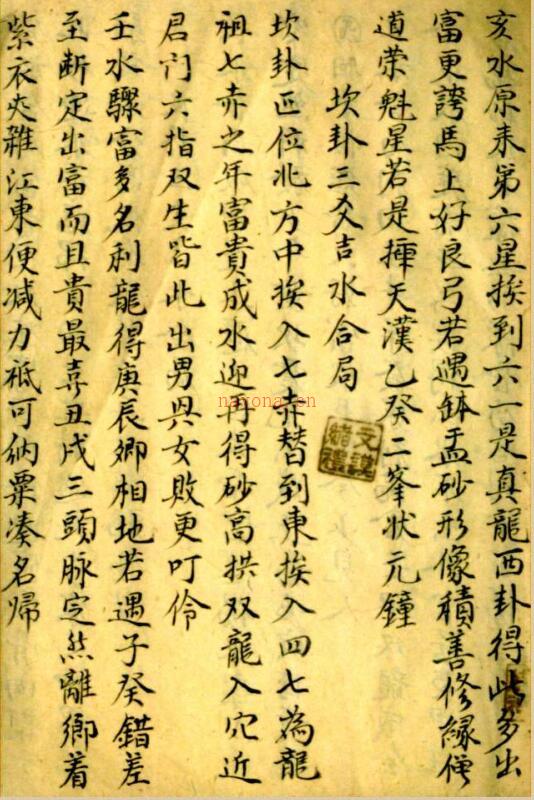 亥水原来第六星挨到六一是真龍西卦得此多出
富更誇馬上好良弓若遇缽盂砂形像積善修緣僧
道荣魁星若是捙天漢乙癸二峯状元鐘
坎卦三爻吉水合局
坎卦正位北方中挨入七赤替到東挨入四七為龍
祖七赤之年富貴成水迎再得砂高拱双龍入穴近
君门六指双生皆此出男與女敗更叮伶
壬水驟富多名利龍得庚辰卿相地若遇子癸錯差
至断定出富而且貴最喜丑戌三頭脉定然離鄉着
紫衣夾雜江東便减力袛可納粟凑名歸
nayona.cn